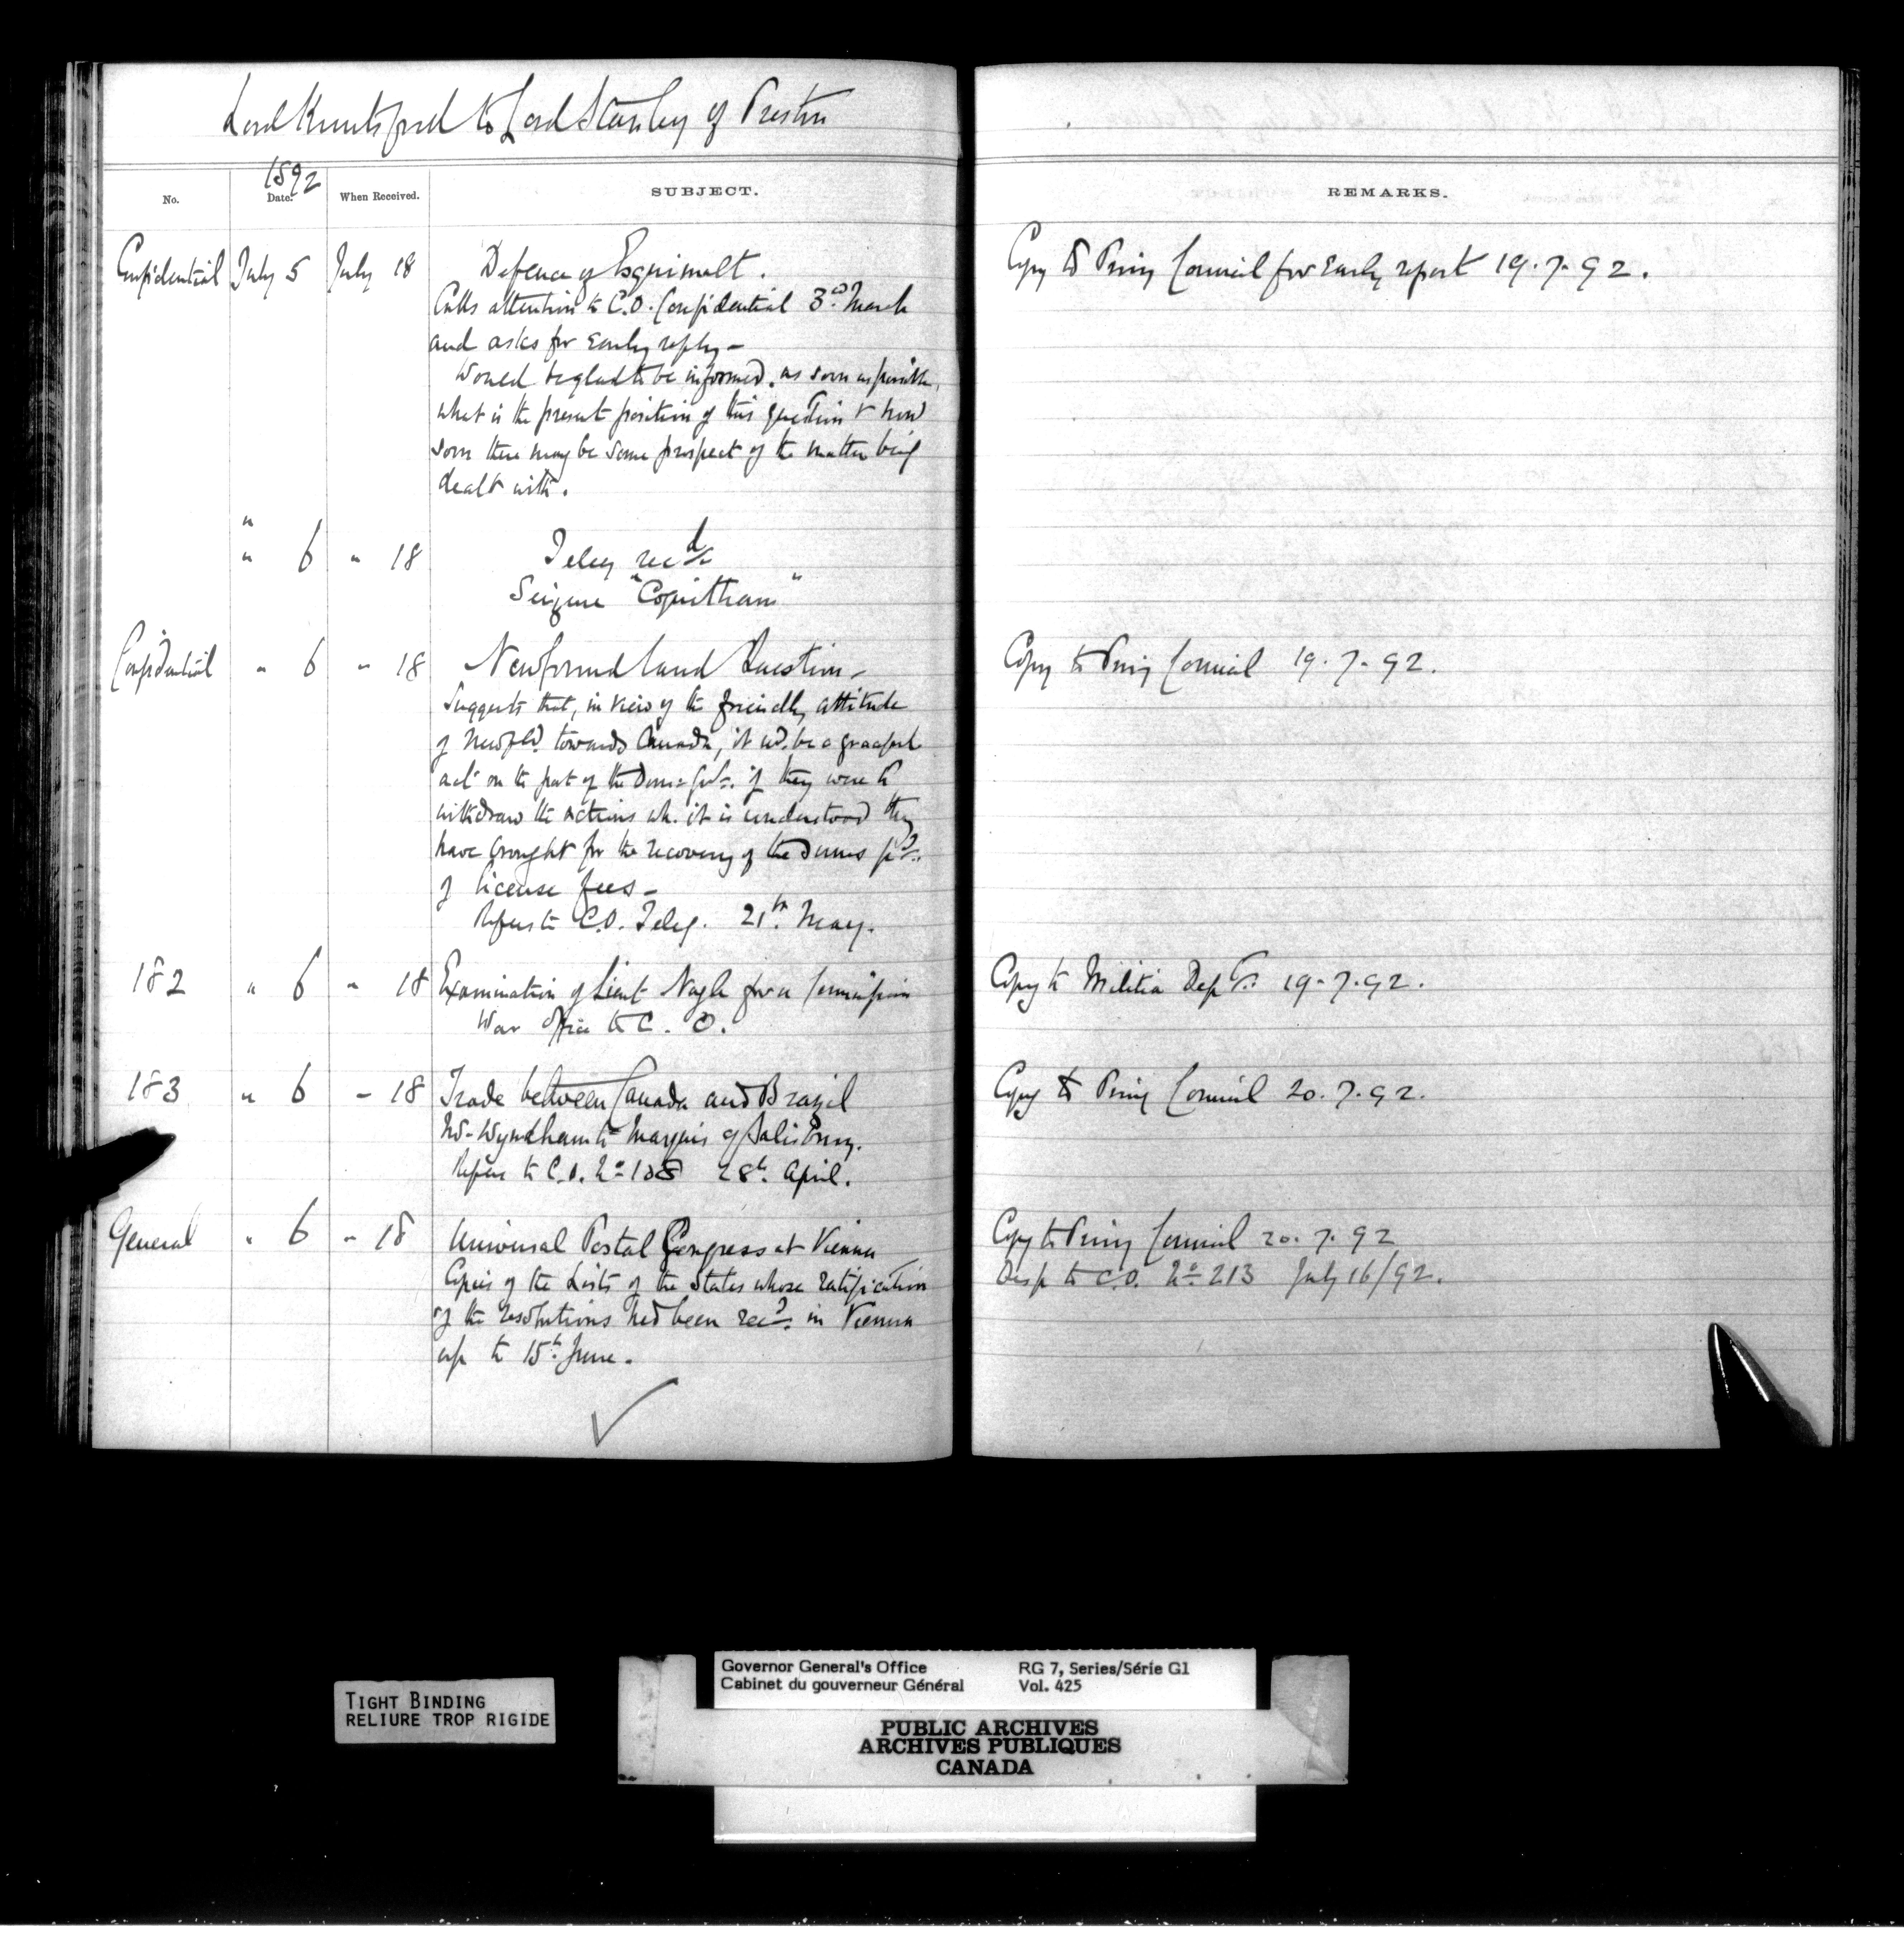 Lord Knutsford to Lord Stanley of Preston
1892
No.
Date.
When Received.
SUBJECT.
REMARKS.
Confidential July 5 July 18 Defence of Esquimalt.
Copy to Privy Council for early report 19.7.92.
Calls attention to C.O. Confidential 3rd March
and asks for early reply -
Would be glad to be informed, as soon as possible,
what is the present position of this question & how
soon there may be some prospect of the matter being
dealt with.
"
" 6 " 18 Teleg recd
Seizure "Coquitlam"
Confidential " 6 " 18 Newfoundland Question -
Copy to Privy Council 19.7.92.
Suggests that, in view of the friendly attitude
of Newfld. towards Canada, it wd. be a graceful
act on the part of the Dom: Govt. if they were to
withdraw the actions wh. it is understood they
have brought for the recovery of the sums pd.
of license fees -
Refers to C.O. Teleg. 21st. May.
182 " 6 " 18 Examination of Lieut Nagle for a Commission
Copy to Militia Dept. 19.7.92.
War Office to C.O.
183 " 6 " 18 Trade between Canada and Brazil
Copy to Privy Council 20.7.92.
Wyndham to Marquis of Salisbury.
Refers to C.O. No 108 28th. April.
General " 6 " 18 Universal Postal Congress at Vienna
Copy to Privy Council 20.7.92
Copies of the Lists of the States whose ratification
Desp to C.O. No 213 July 16/92.
of the resolutions had been recd. in Vienna
up to 15th. June.
TIGHT BINDING
RELIURE TROP RIGIDE
Governor General's Office
Cabinet du gouverneur Général
RG 7, Series/Série G1
Vol. 425
PUBLIC ARCHIVES
ARCHIVES PUBLIQUES
CANADA